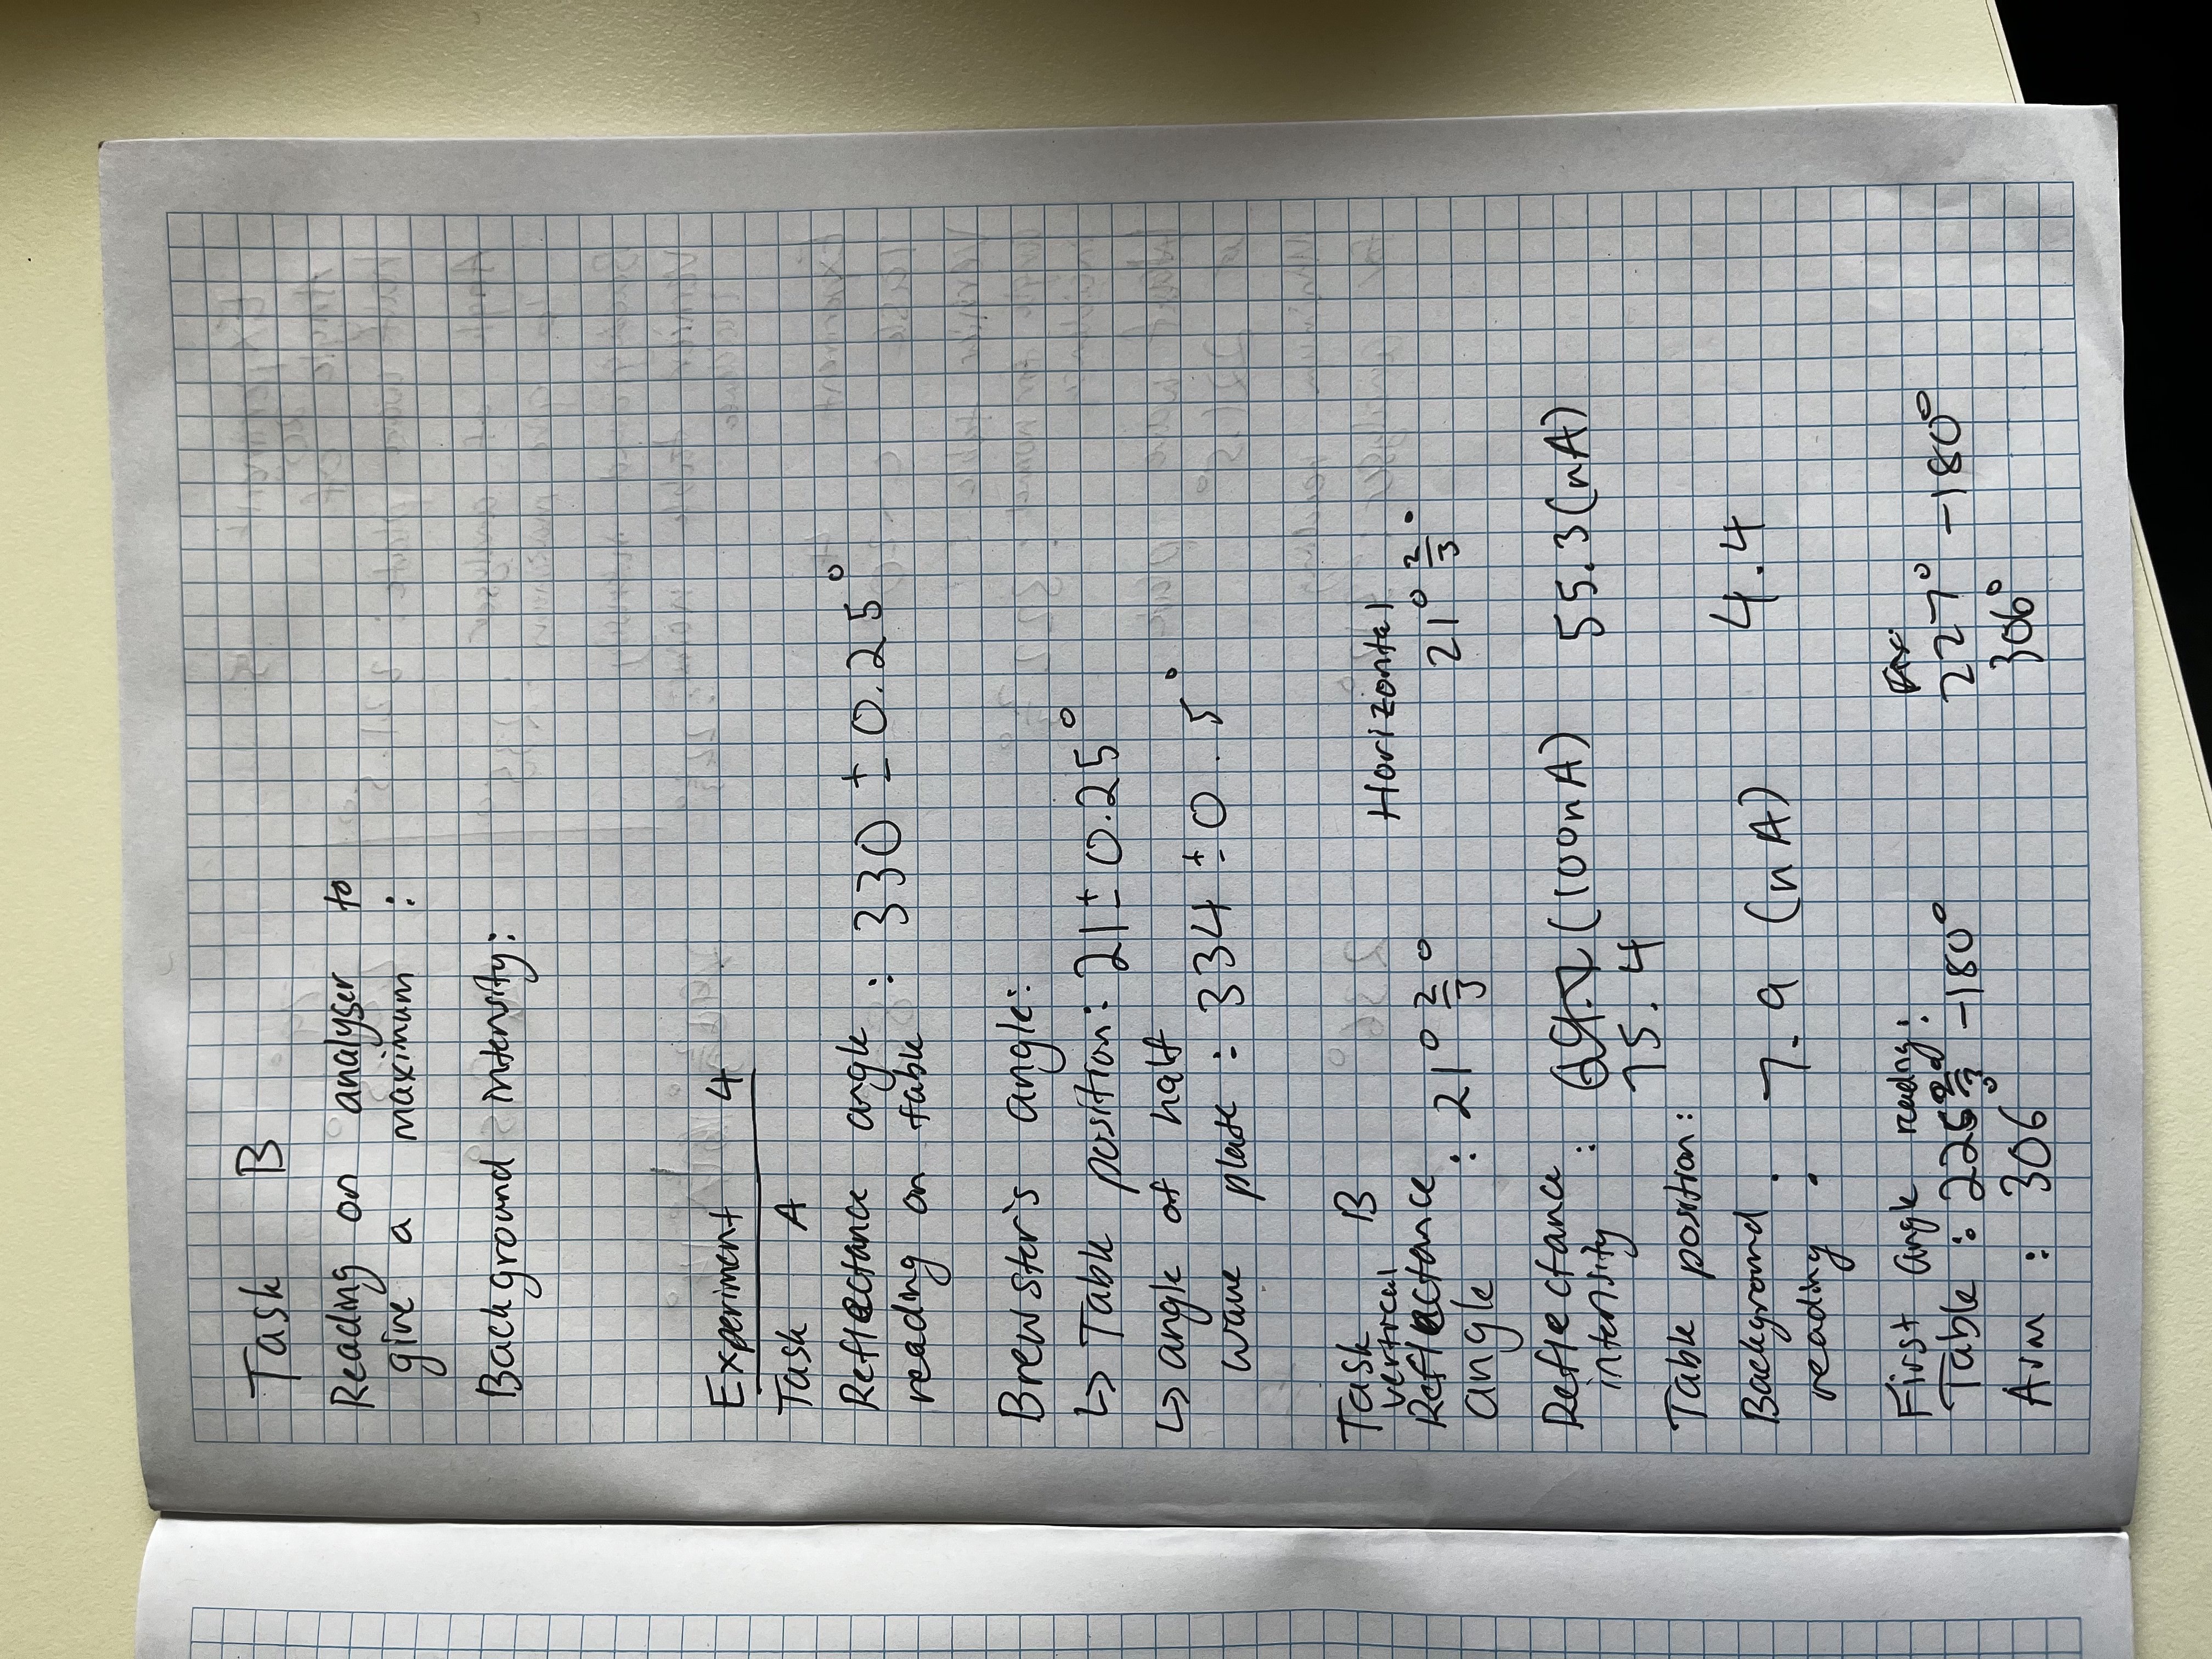 Task B
Reading on analyser to
give a maximum :
Background intensity:
Experiment 4
Task A
Reflectance angle
reading on table : 330 ± 0.25°
Brewster's angle:
↳ Table position: 21 ± 0.25°
↳ angle of half
wave plate : 334 ± 0.5°
Task B
vertical Horizontal
Reflectance
angle : 21° 2/3° 21° 2/3°
Reflectance
intensity : (100nA) 55.3(nA)
75.4
Table position:
Background
reading : 7.9 (nA) 4.4
First angle reading:
Table : 226 2/3° -180° 227° -180°
Arm : 306° 306°